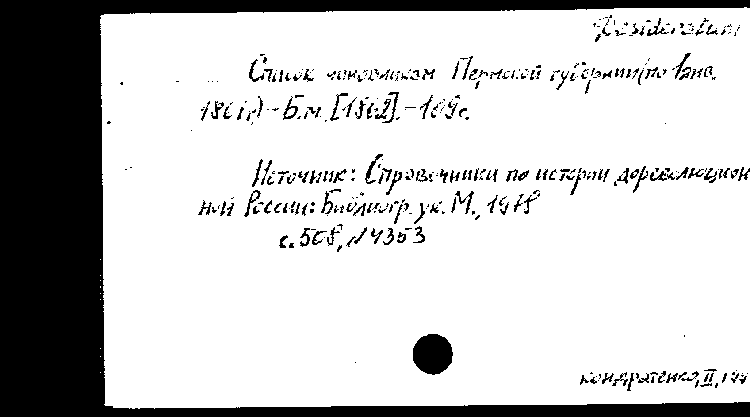 Desideratum
Список чиновникам Пермской губернии (по 1 янв.
1861г.) - Б.м. [1862]. - 109с.
Источник: Справочники по истории дореволюцион
ной России: Библиогр. ук. М., 1978
с. 508, N4353
Кондратенко, II, 199